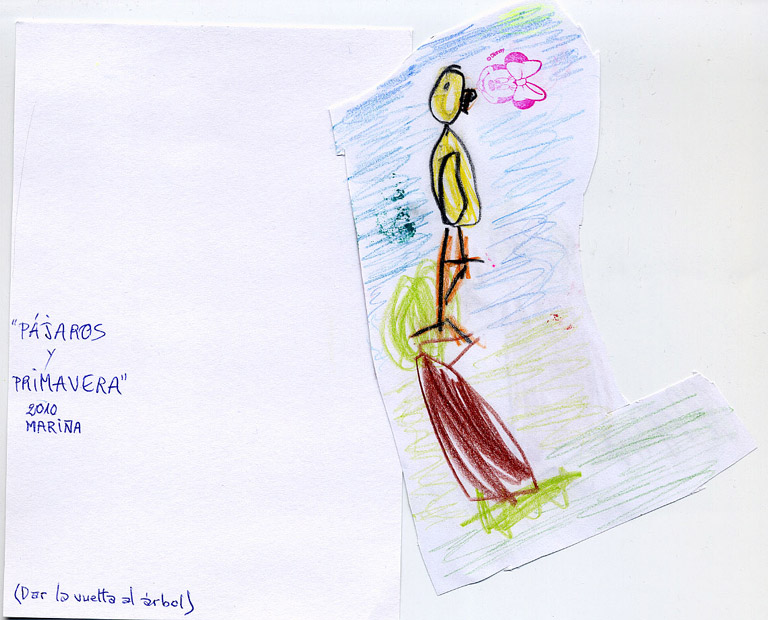 "PÁJAROS
Y
PRIMAVERA"
2010
MARIÑA
(Dar la vuelta al árbol)
© Disney